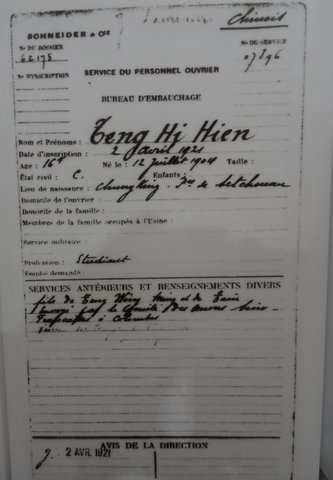 Chinois
SCHNEIDER & Cie
No DU DOSSIER
62175
No DU SERVICE
07396
No D'INSCRIPTION
SERVICE DU PERSONNEL OUVRIER
BUREAU D'EMBAUCHAGE
Nom et Prénoms : Teng Hi Hien
Date d'inscription : 2 avril 1921
Age : 16 Né le : 12 juillet 1904 Taille :
État civil : C. Enfants :
Lieu de naissance : Chungking - de Setchouean
Domicile de l'ouvrier :
Domicile de la famille :
Membres de la famille occupés à l'Usine :
Service militaire :
Profession : Etudiant
Emploi demandé :
SERVICES ANTÉRIEURS ET RENSEIGNEMENTS DIVERS
fils de Teng Ming et de
Envoyé par le Comité des oeuvres sino-
françaises à Colombes
AVIS DE LA DIRECTION
2 AVRIL 1921